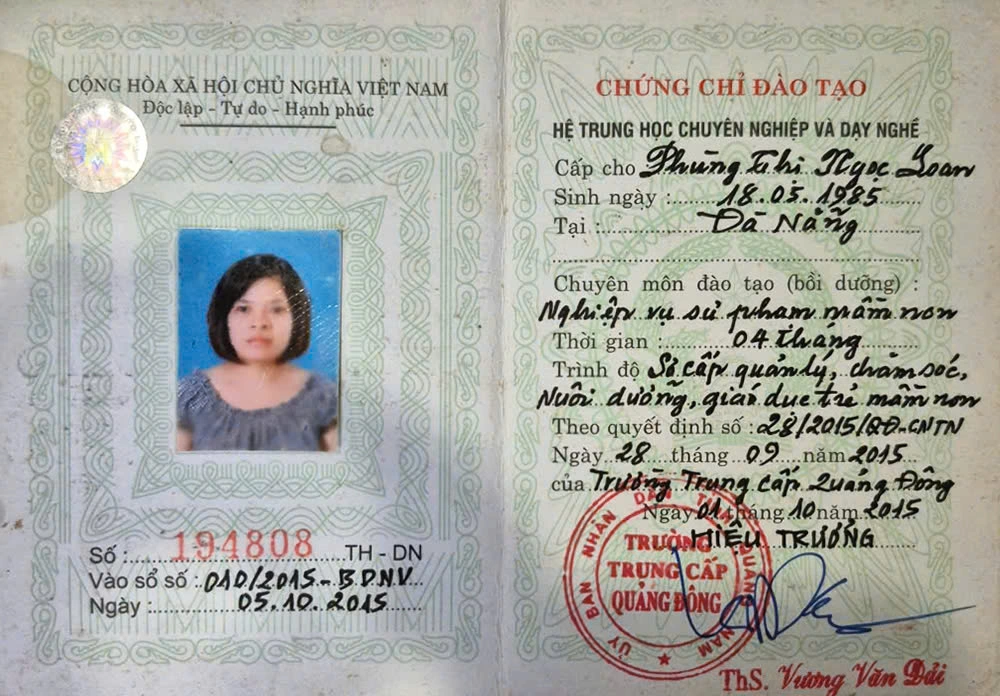 CỘNG HÒA XÃ HỘI CHỦ NGHĨA VIỆT NAM
Độc lập - Tự do - Hạnh phúc
Số : 194808 TH - DN
Vào sổ số : 010/2015-BDNV
Ngày : 05.10.2015
CHỨNG CHỈ ĐÀO TẠO
HỆ TRUNG HỌC CHUYÊN NGHIỆP VÀ DẠY NGHỀ
Cấp cho Phùng Thị Ngọc Loan
Sinh ngày : 18.05.1985
Tại : Đà Nẵng
Chuyên môn đào tạo (bồi dưỡng) :
Nghiệp vụ sư phạm mầm non
Thời gian : 04 tháng
Trình độ Sơ cấp quản lý, chăm sóc,
Nuôi dưỡng, giáo dục trẻ mầm non
Theo quyết định số : 28/2015/QĐ-CNTN
Ngày 28 tháng 09 năm 2015
của Trường Trung cấp Quảng Đông
Ngày 01 tháng 10 năm 2015
HIỆU TRƯỞNG
ỦY BAN NHÂN DÂN TỈNH QUẢNG NAM
TRƯỜNG
TRUNG CẤP
QUẢNG ĐÔNG
ThS. Vương Văn Đải